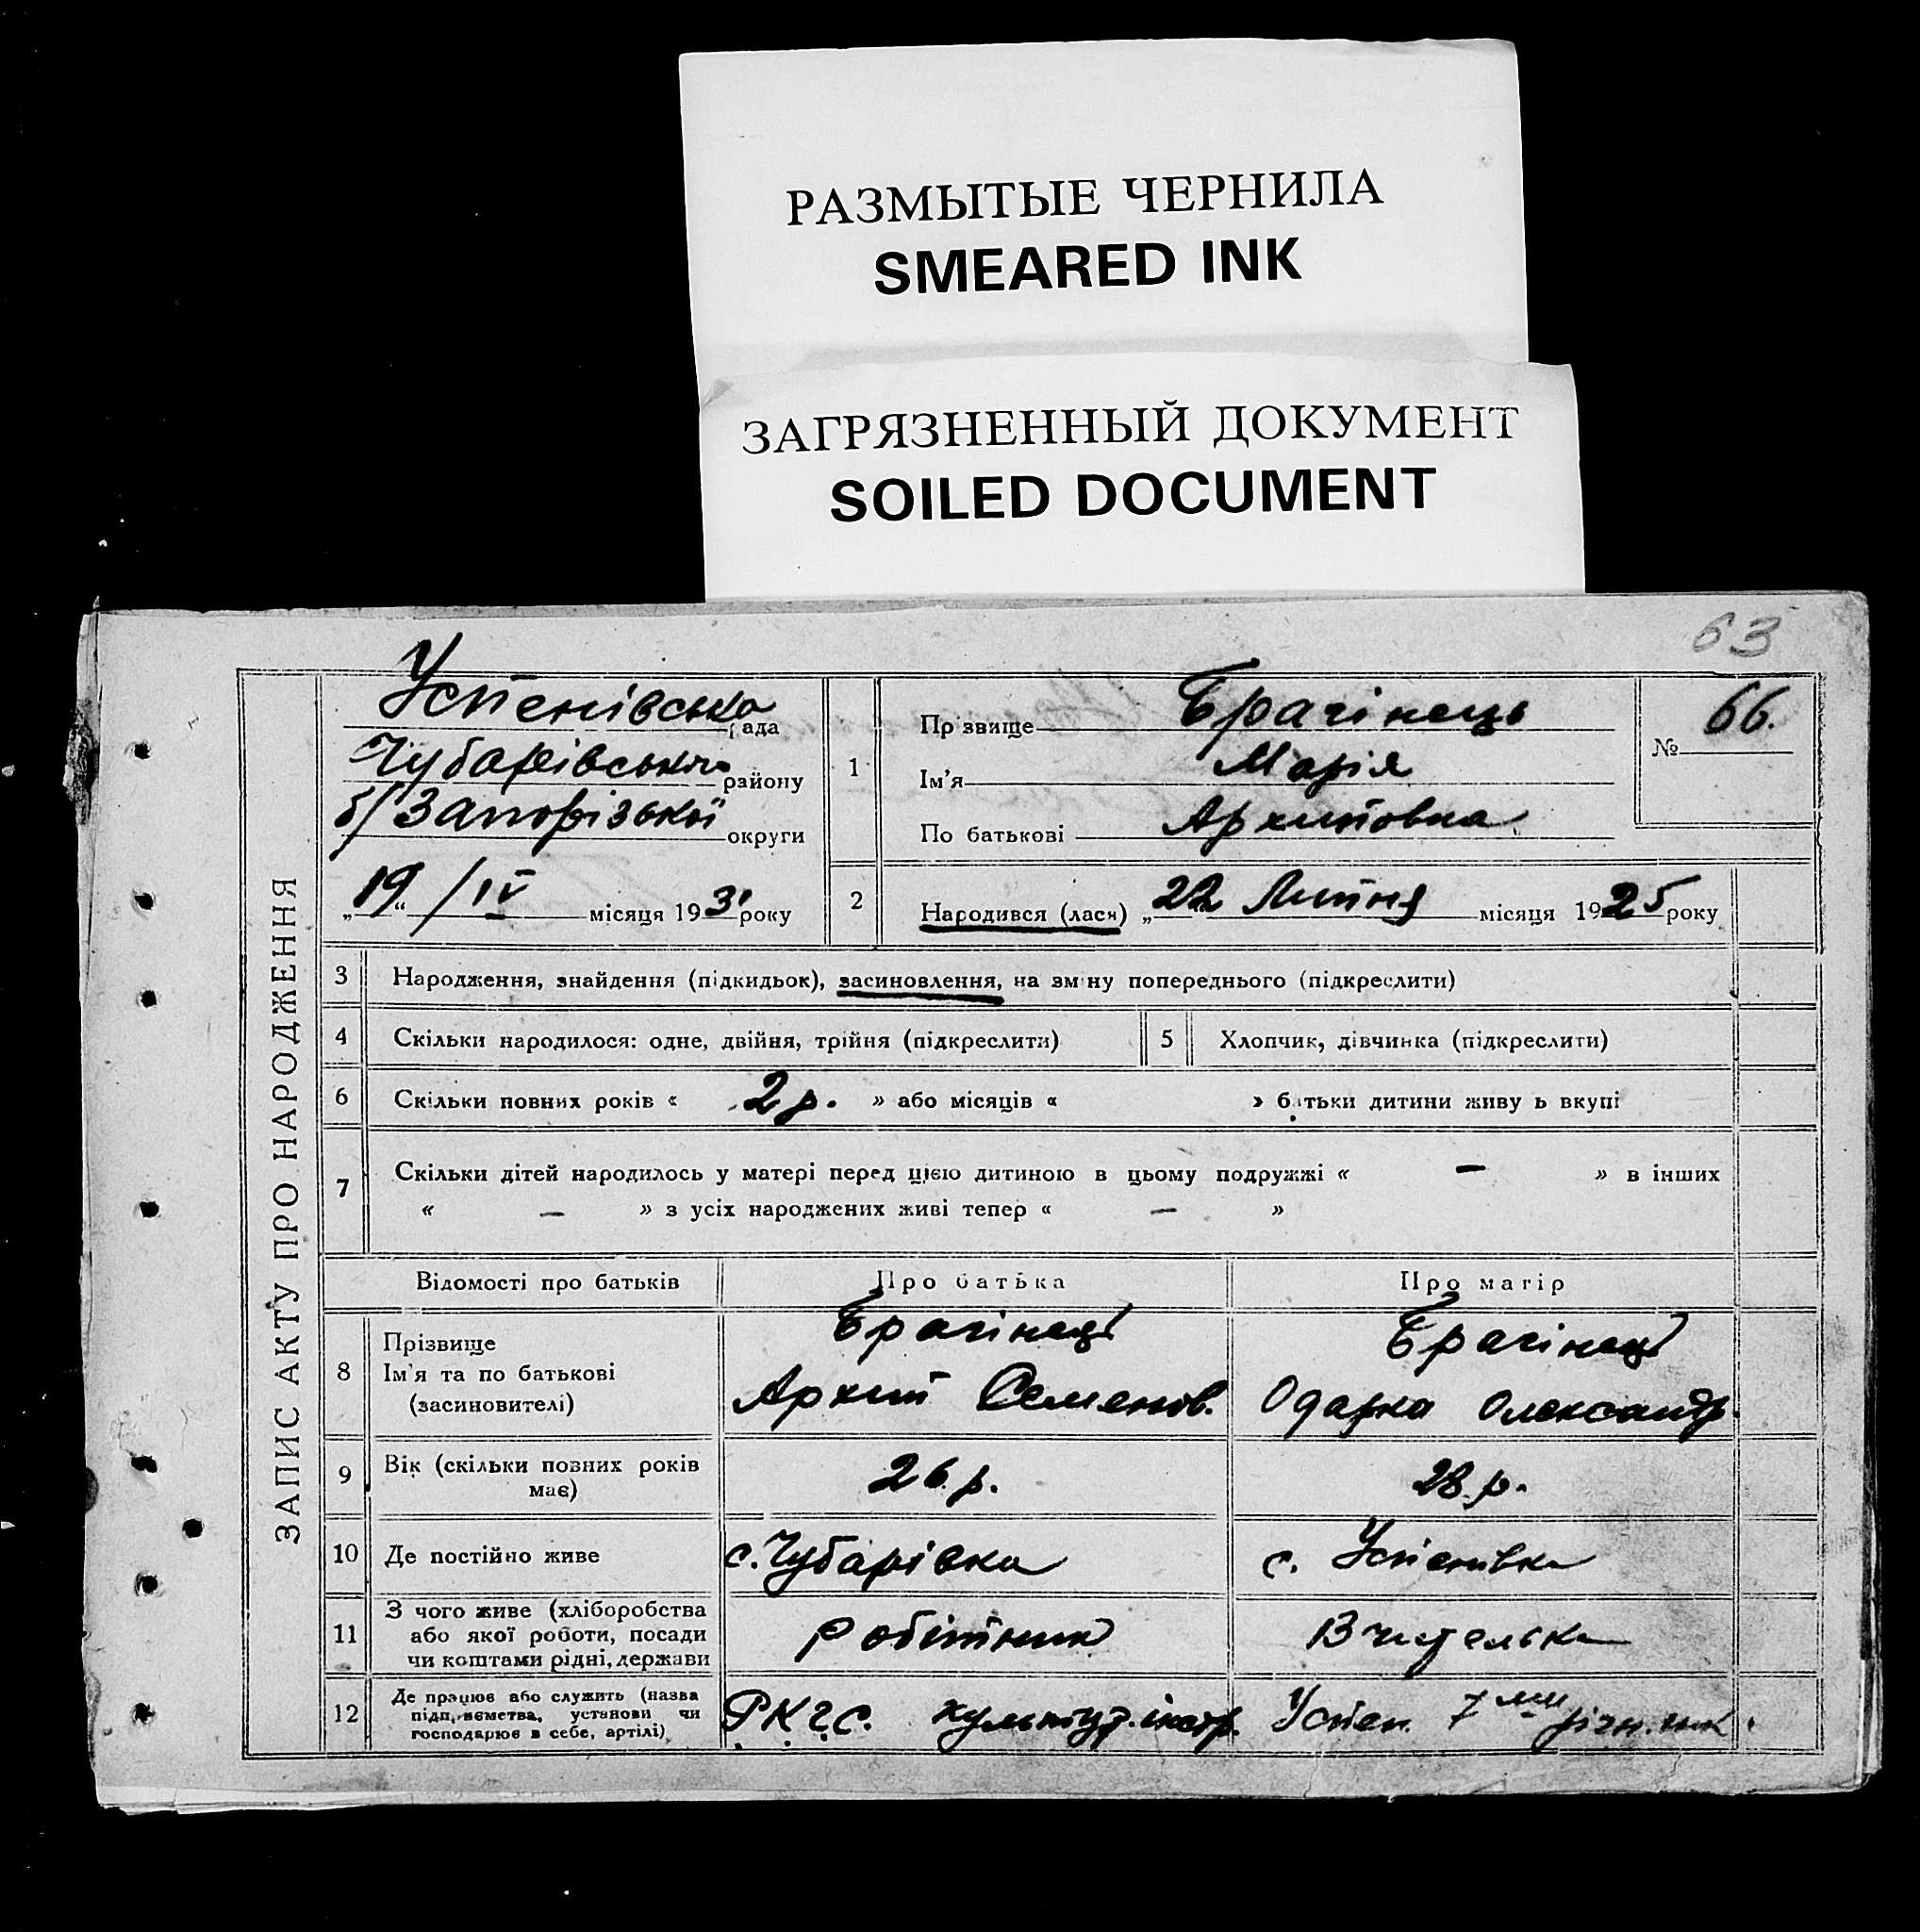 РАЗМЫТЫЕ ЧЕРНИЛА
SMEARED INK
ЗАГРЯЗНЕННЫЙ ДОКУМЕНТ
SOILED DOCUMENT
63
ЗАПИС АКТУ ПРО НАРОДЖЕННЯ
Успенівська рада
Чубарівського району
б/Запорізької округи
„19“ /IV місяця 1931 року
1
Прізвище Брагінець
Ім'я Марія
По батькові Архиповна
№ 66.
2
Народився (лася) „22 Липня місяця 1925 року
3 Народження, знайдення (підкидьок), засиновлення, на зміну попереднього (підкреслити)
4 Скільки народилося: одне, двійня, трійня (підкреслити) 5 Хлопчик, дівчинка (підкреслити)
6 Скільки повних років « 2 р. » або місяців « » батьки дитини живуть вкупі
7 Скільки дітей народилось у матері перед цією дитиною в цьому подружжі « — » в інших
« — » з усіх народжених живі тепер « — »
Відомості про батьків Про батька Про матір
8 Прізвище Ім'я та по батькові (засиновителі)
Брагінець
Архип Семенов.
Брагінець
Одарка Олександр.
9 Вік (скільки повних років має) 26 р. 28 р.
10 Де постійно живе с. Чубарівка с. Успенівка
11 З чого живе (хліборобства або якої роботи, посади чи коштами рідні, держави робітник Вчителька
12 Де працює або служить (назва підприємства, установи чи господарює в себе, артілі) культур. інстр. Успен. 7ми річн. шк.